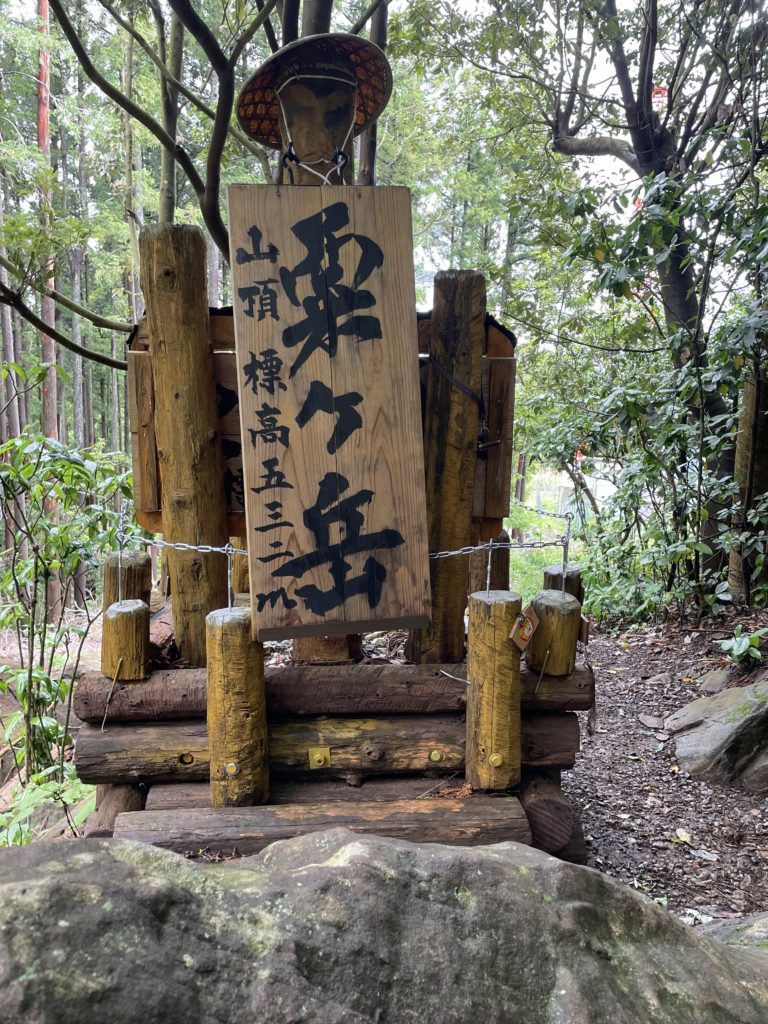 粟ヶ岳
山頂 標高五三二m